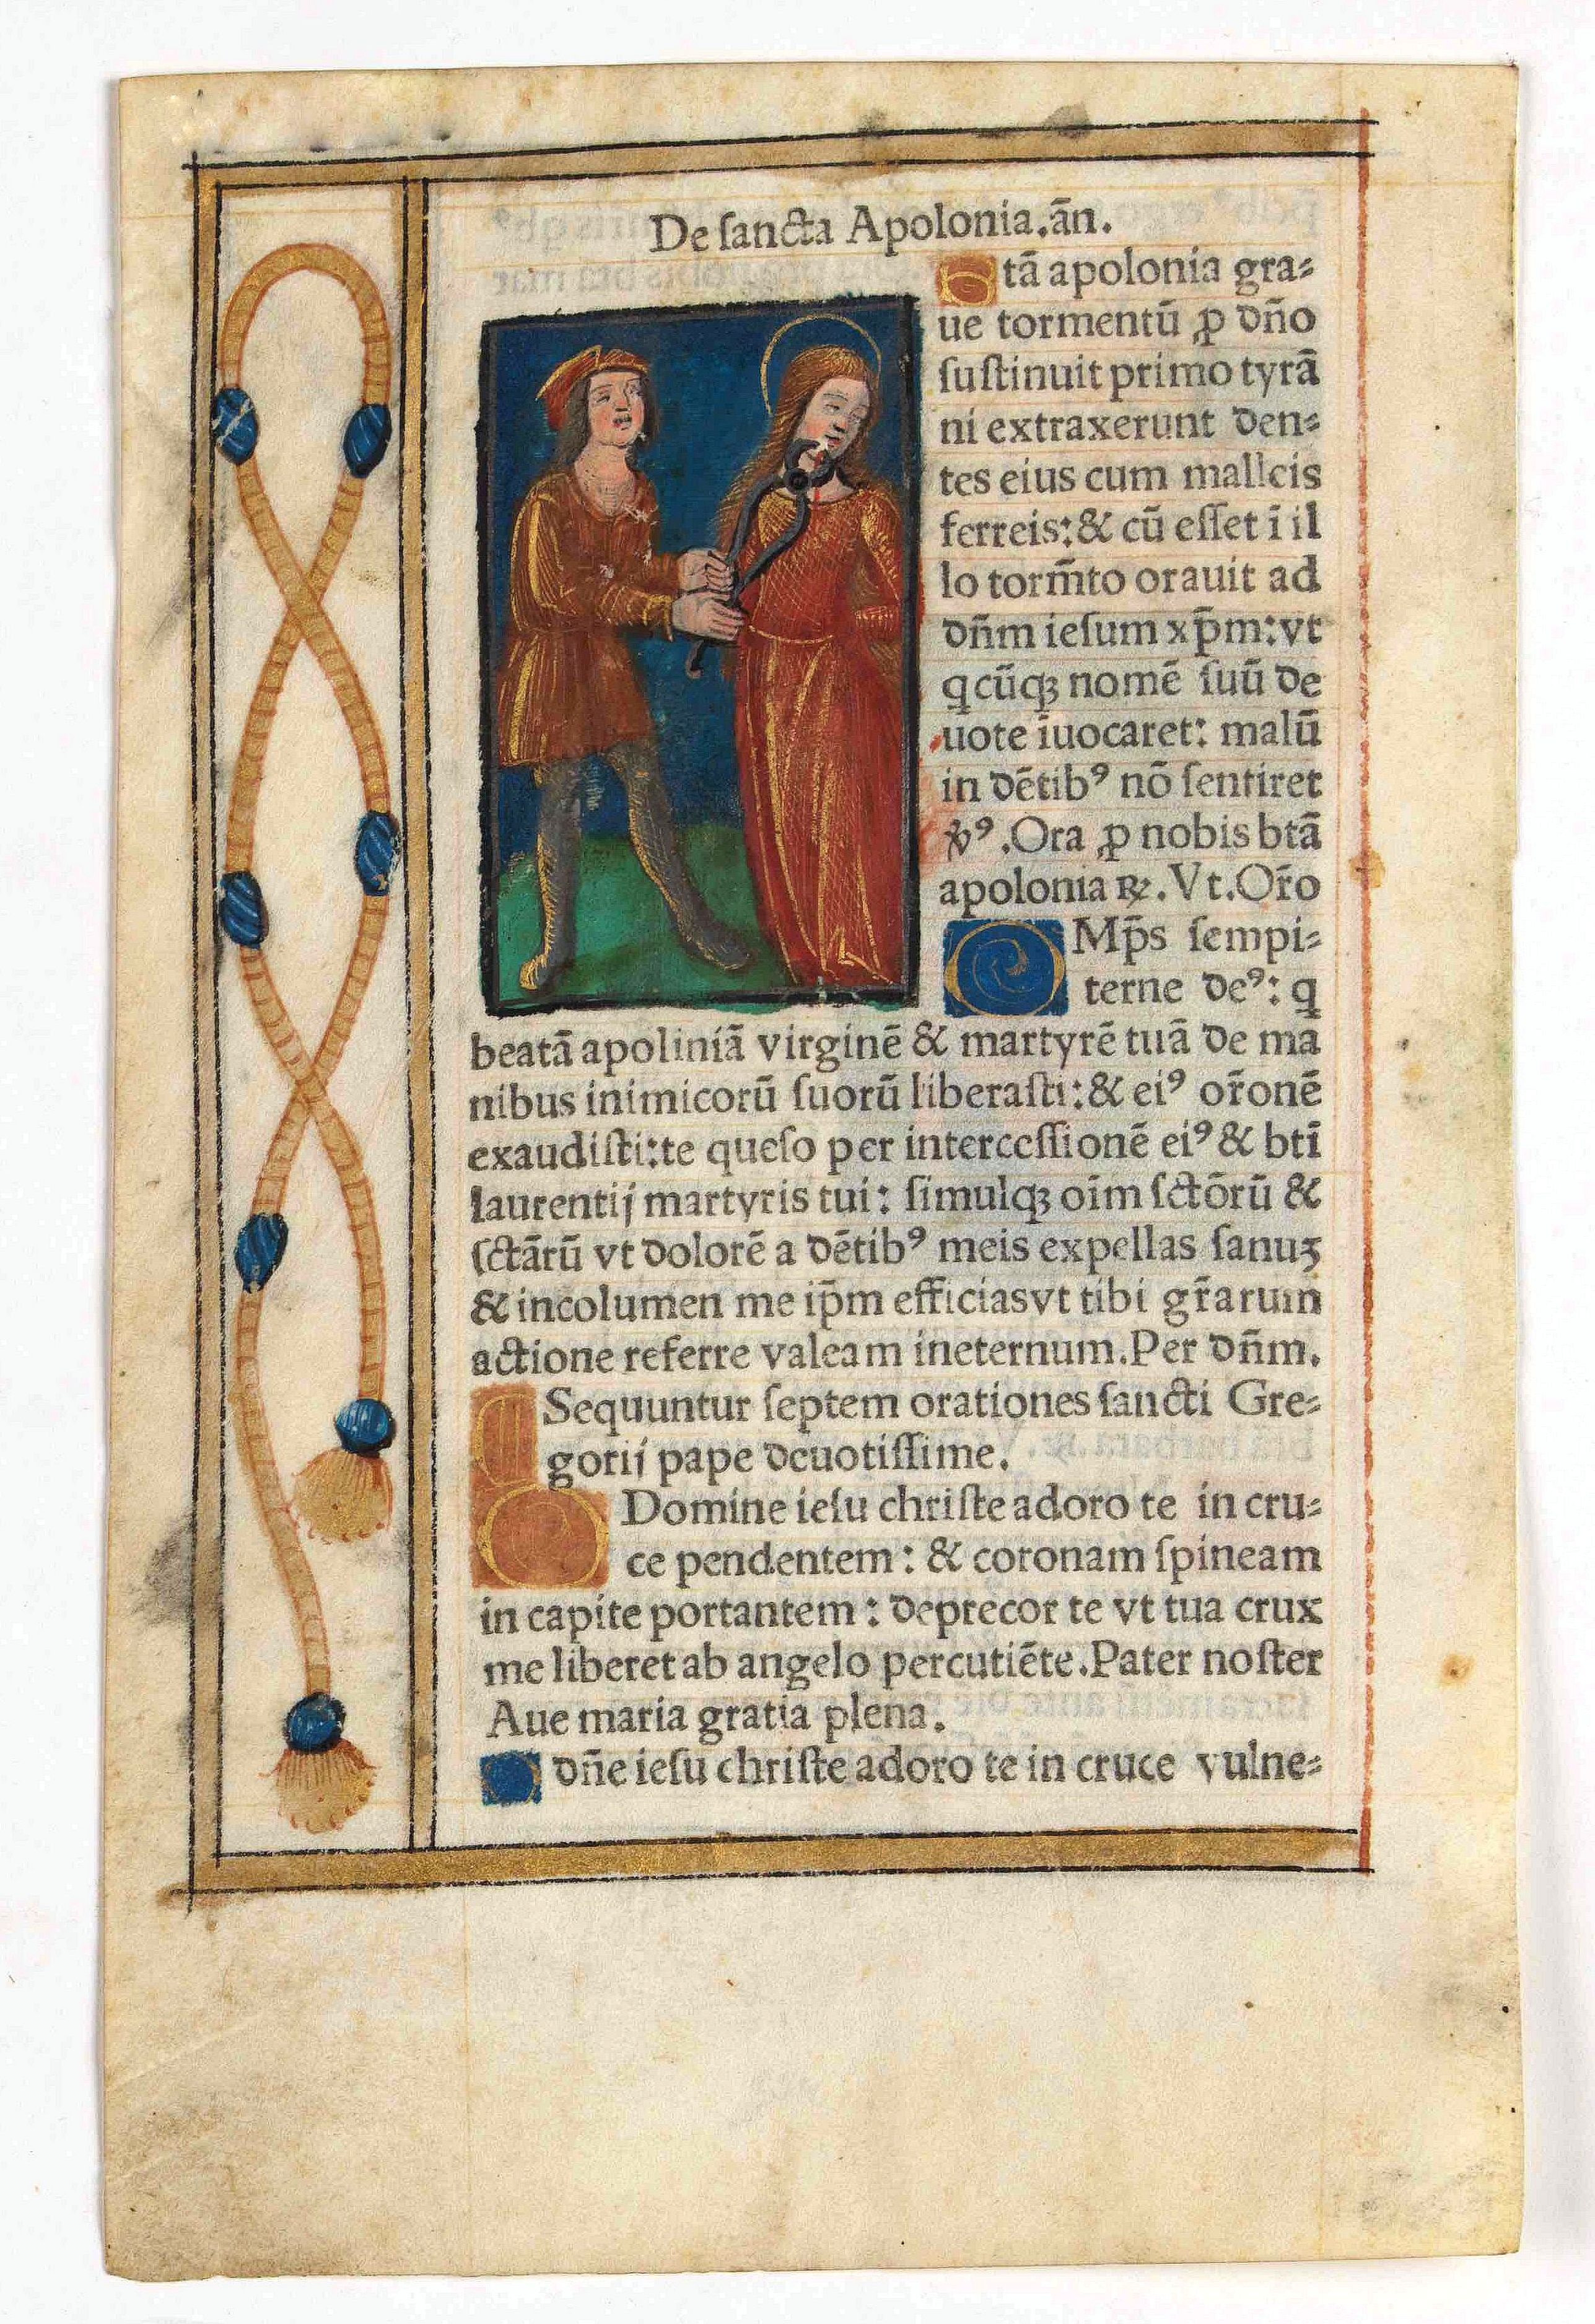 De sancta Apolonia.ān.
Stā apolonia gra⸗
ue tormentū ꝓ dño
sustinuit primo tyrā
ni extraxerunt den⸗
tes eius cum malleis
ferreis: & cū esset ī il
lo torm̄to orauit ad
dñm iesum xp̄m: vt
qcūqꝫ nomē suū de
uote īuocaret: malū
in dētibꝰ nō sentiret
℣ꝰ. Ora ꝓ nobis btā
apolonia ℞. Vt. Or̄o
OMp̄s sempi⸗
terne deꝰ: q
beatā apoliniā virginē & martyrē tuā de ma
nibus inimicorū suorū liberasti: & eiꝰ or̄onē
exaudisti: te queso per intercessionē eiꝰ & btī
laurentij martyris tui: simulqꝫ oīm sctōrū &
sctārū vt dolorē a dētibꝰ meis expellas sanuꝫ
& incolumen me ip̄m efficias vt tibi gr̄arum
actione referre valeam ineternum. Per dñm.
Sequuntur septem orationes sancti Gre⸗
gorij pape deuotissime.
O Domine iesu christe adoro te in cru⸗
ce pendentem: & coronam spineam
in capite portantem: deprecor te vt tua crux
me liberet ab angelo percutiēte. Pater noster
Aue maria gratia plena.
dñe iesu christe adoro te in cruce vulne⸗